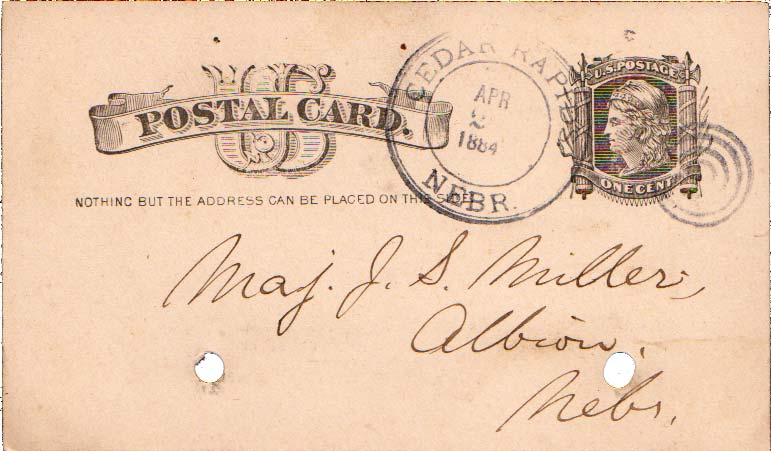 US
POSTAL CARD.
NOTHING BUT THE ADDRESS CAN BE PLACED ON THIS SIDE.
CEDAR RAPIDS
APR
1884
NEBR.
U.S. POSTAGE
ONE CENT
Maj. J. S. Miller,
Albion,
Nebr.